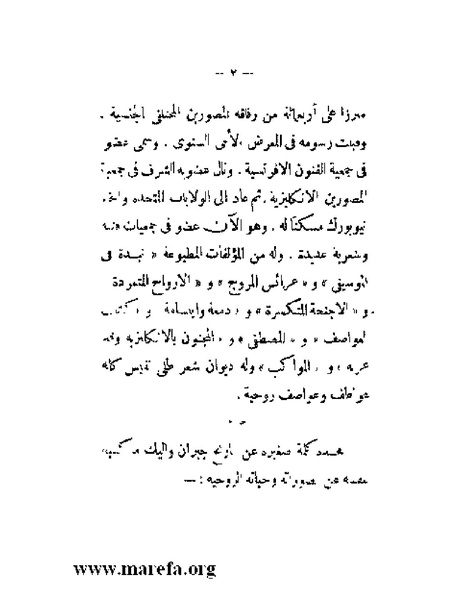 — ٢ —
مبرزا على أربعمائة من رفاقه المصورين المختلفي الجنسية .
وقبلت رسومه في المعرض الأممي السنوي . وسمي عضو
في جمعية الفنون الافرنسية . ونال عضويه الشرف في جمعية
المصورين الانكليزية . ثم عاد الى الولايات المتحدة واتخذ
نيويورك مسكنا له . وهو الآن عضو في جمعيات فنية
وشعرية عديدة . وله من المؤلفات المطبوعة « نبذة في
الموسيقى » و « عرائس المروج » و « الارواح المتمردة
و « الاجنحة المتكسرة » و « دمعة وابتسامة » و
العواصف » و « المصطفى » و « المجنون بالانكليزيه
عربه » و « المواكب » وله ديوان شعر طلي نفيس كله
عواطف وعواصف روحية .
كلمة صغيره عن تاريخ جبران واليك
عن تصوراته وحياته الروحيه : —
www.marefa.org